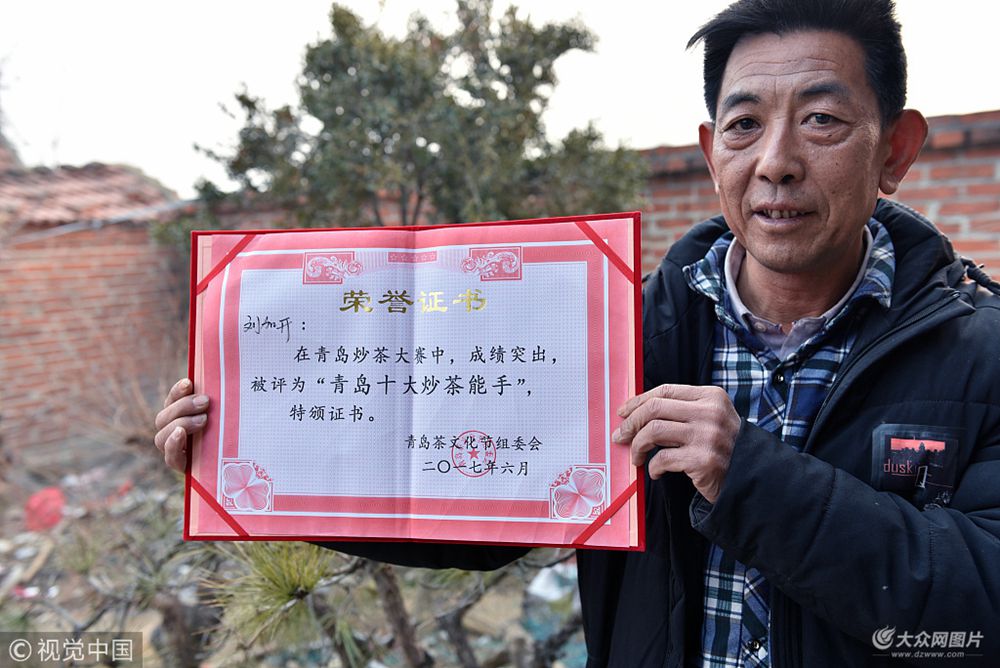 荣誉证书
刘加开：
在青岛炒茶大赛中，成绩突出，
被评为“青岛十大炒茶能手”，
特颁证书。
青岛茶文化节组委会
二〇一七年六月
dusk
© 视觉中国
大众网图片
www.dzwww.com